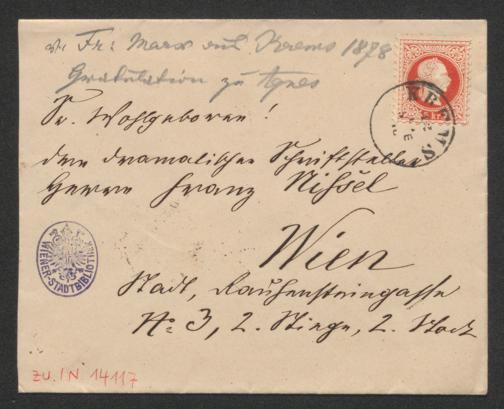 Fr: Marx aus Krems 1878
Gratulation zu Agnes
Sr. Wohlgeboren!
dem dramatischen Schriftsteller
Herrn Franz Nissel
Wien
Stadt, Rauhensteingasse
No: 3, 2. Stiege, 2. Stock
KREMS
WIENER-STADTBIBLIOTHEK
ZU. IN 14117